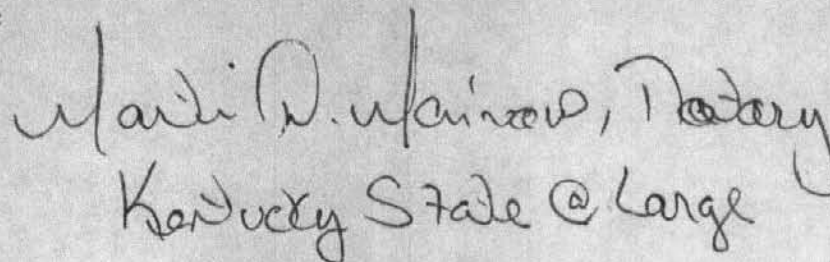 Marti D. , Notary
Kentucky State @ Large